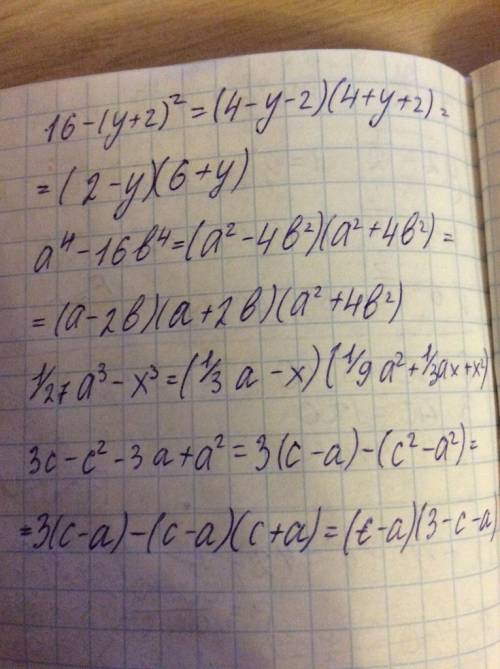 16-(y+2)²=(4-y-2)(4+y+2)=
=(2-y)(6+y)
a⁴-16b⁴=(a²-4b²)(a²+4b²)=
=(a-2b)(a+2b)(a²+4b²)
1/27a³-x³=(1/3a-x)(1/9a²+1/3ax+x²)
3c-c²-3a+a²=3(c-a)-(c²-a²)=
=3(c-a)-(c-a)(c+a)=(c-a)(3-c-a)